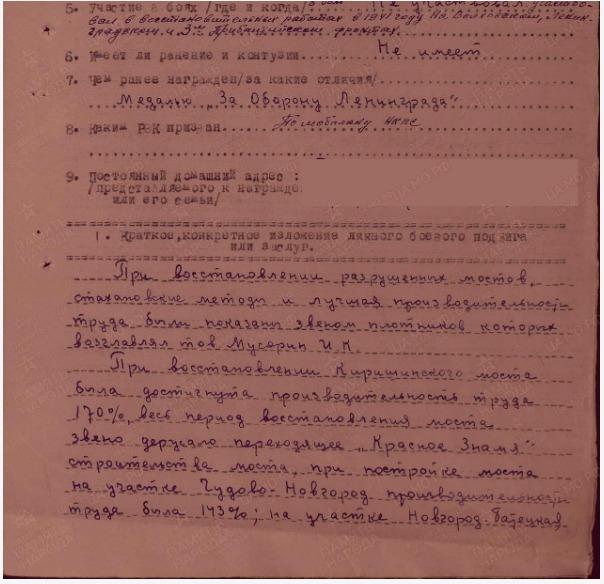 5. участие в боях /где и когда/ Не участвовал, участво-
вал в восстановительных работах в 1941 году на Волховском, Ленин-
градском и 3ем Прибалтийском фронтах.
6. Имеет ли ранение и контузии Не имеет
7. Чем ранее награжден/за какие отличия/
Медалью „За Оборону Ленинграда"
8. Каким РВК призван По мобплану НКПС
9. Постоянный домашний адрес :
/представляемого к награжде
или его семьи/
1. Краткое, конкретное изложение личного боевого подвига
или заслуг.
При восстановлении разрушенных мостов,
стахановские методы и лучшая производительность
труда были показаны звеном плотников которых
возглавлял тов Мусорин И.К.
При восстановлении Киришинского моста
была достигнута производительность труда
170%, весь период восстановления моста
звено держало переходящее „Красное Знамя"
строительства моста, при постройке моста
на участке Чудово-Новгород производительность
труда была 143%; на участке Новгород-Батецкая